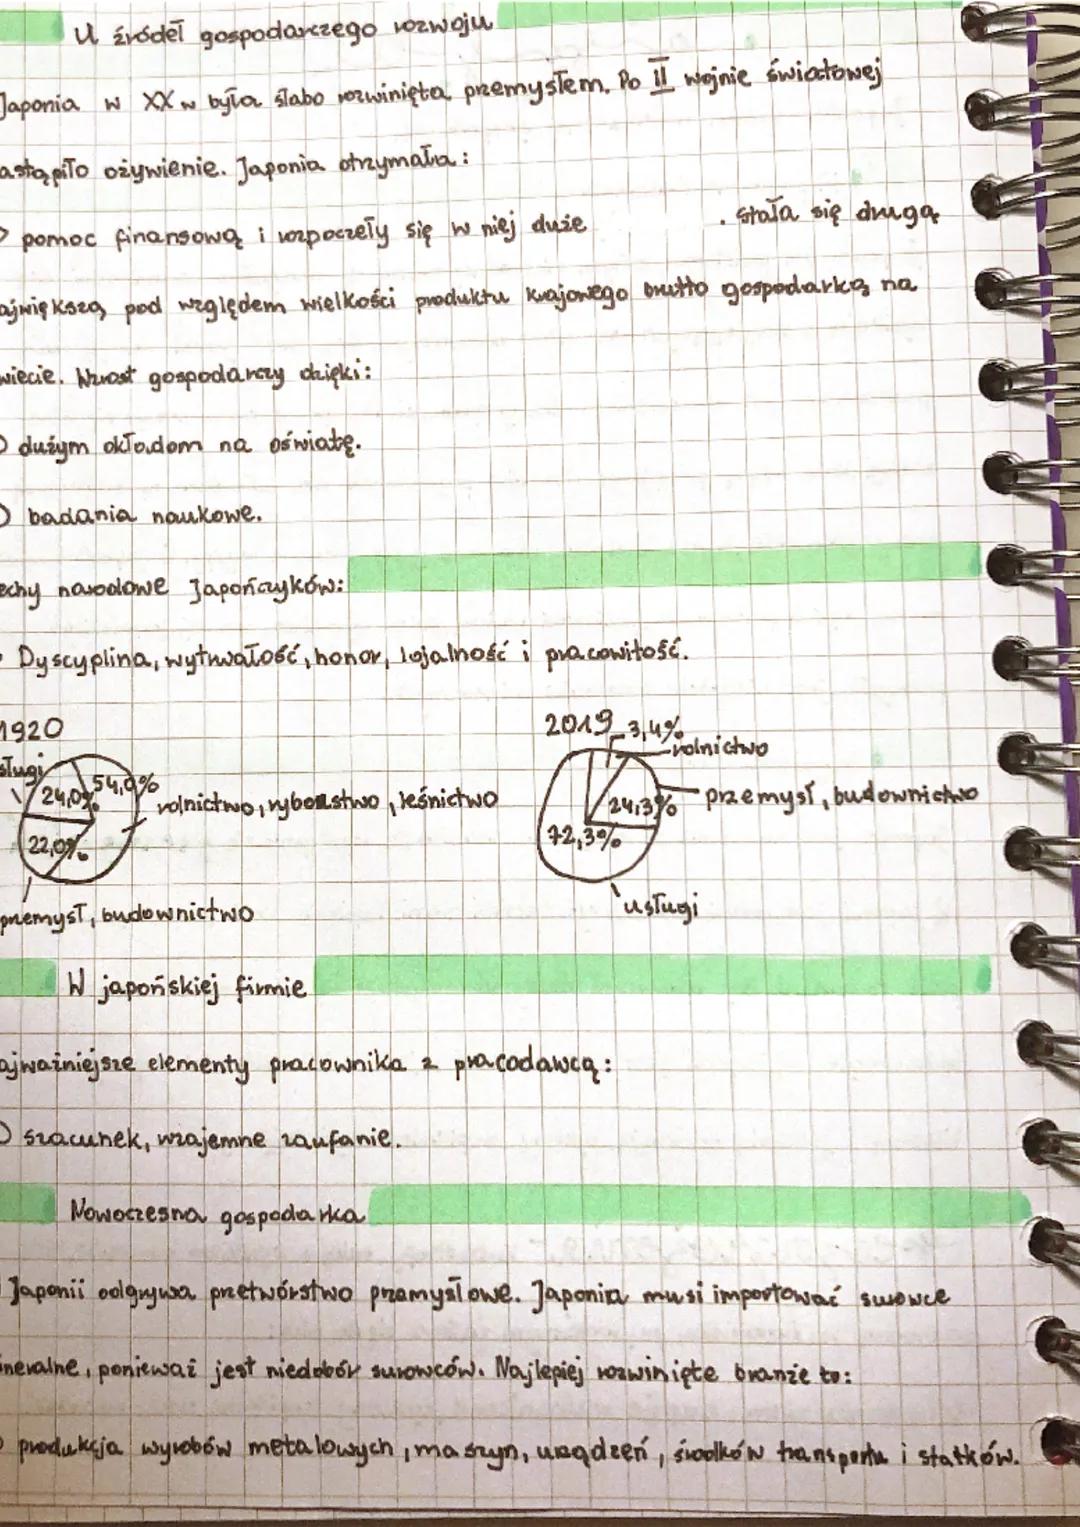 U źródeł gospodarczego rozwoju
Japonia w XX w była słabo rozwinięta przemysłem. Po II wojnie światowej
astąpiło ożywienie. Japonia otrzymała:
pomoc finansową i rozpoczeły się w niej duże . stała się drugą
ajwiększą pod względem wielkości produktu krajowego brutto gospodarką na
wiecie. Wzrost gospodarczy dzięki:
dużym okładom na oświatę.
badania naukowe.
echy narodowe Japończyków:
Dyscyplina, wytrwałość, honor, lojalność i pracowitość.
1920
sługi
24,0%
54,0%
rolnictwo, rybołstwo, leśnictwo
22,0%
przemysł, budownictwo
2019
3,4%
rolnictwo
24,3%
przemysł, budownictwo
72,3%
usługi
W japońskiej firmie
ajważniejsze elementy pracownika z pracodawcą:
szacunek, wzajemne zaufanie.
Nowoczesna gospodarka
Japonii odgrywa przetwórstwo przamysłowe. Japonia musi importować surowce
ineralne, ponieważ jest niedobór surowców. Najlepiej rozwinięte branże to:
produkcja wyrobów metalowych, maszyn, urządzeń, środków transportu i statków.